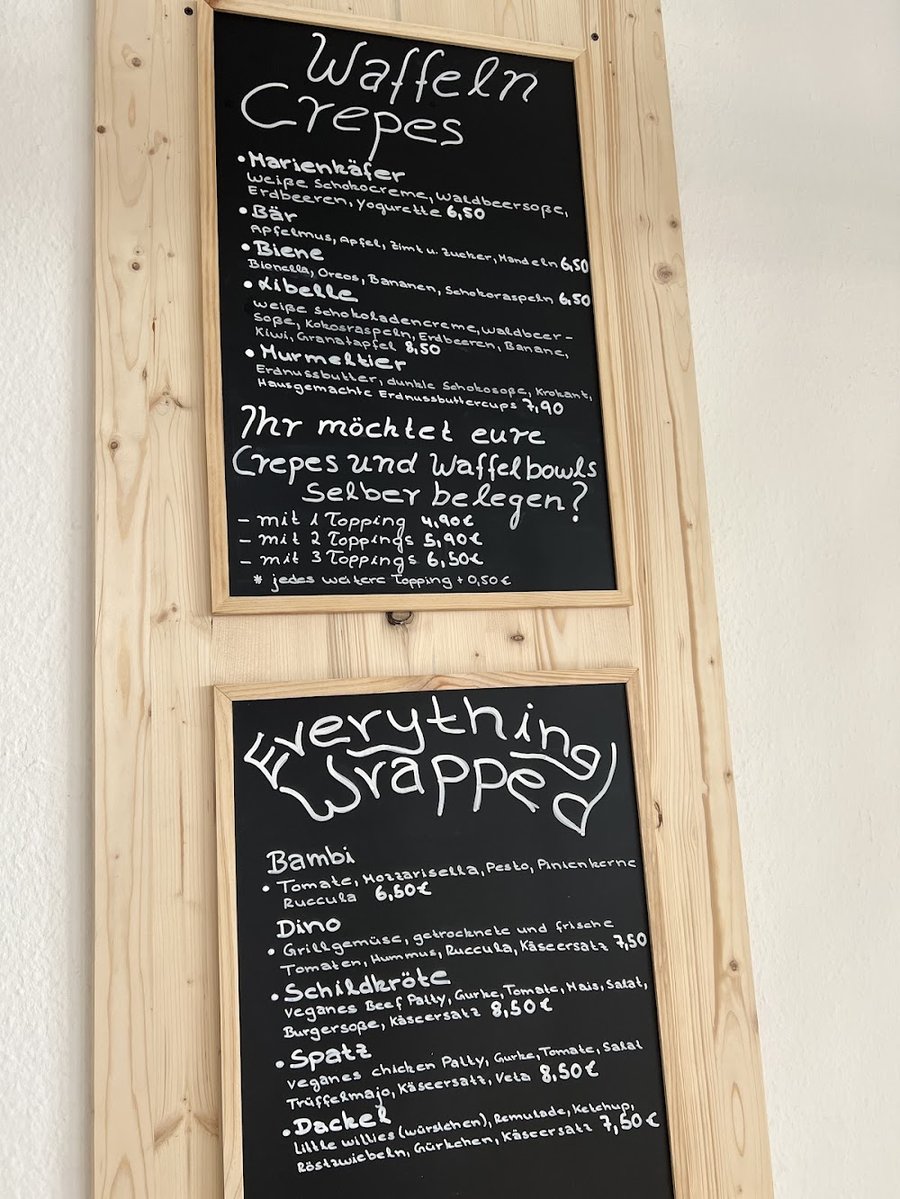 Waffeln
Crepes
• Marienkäfer
Weiße Schokocreme, Waldbeersoße,
Erdbeeren, Yogurette 6,50
• Bär
Apfelmus, Apfel, Zimt u. Zucker, Mandeln 6,50
• Biene
Bionella, Oreos, Bananen, Schokoraspeln 6,50
• Libelle
weiße Schokoladencreme, Waldbeer-
soße, Kokosraspeln, Erdbeeren, Banane,
Kiwi, Granatapfel 8,50
• Murmeltier
Erdnussbutter, dunkle Schokosoße, Krokant,
Hausgemachte Erdnussbuttercups 7,90
Ihr möchtet eure
Crepes und Waffelbowls
selber belegen?
- mit 1 Topping 4,90€
- mit 2 Toppings 5,90€
- mit 3 Toppings 6,50€
* jedes weitere Topping + 0,50€
Everything
Wrapped
Bambi
• Tomate, Mozzarisella, Pesto, Pinienkerne
Ruccula 6,50€
Dino
• Grillgemüse, getrocknete und frische
Tomaten, Hummus, Ruccula, Käseersatz 7,50
• Schildkröte
veganes Beef Patty, Gurke, Tomate, Mais, Salat,
Burgersoße, Käseersatz 8,50€
• Spatz
veganes chicken Patty, Gurke, Tomate, Salat
Trüffelmajo, Käseersatz, Veta 8,50€
• Dackel
Little willies (würstchen), Remulade, Ketchup,
Röstzwiebeln, Gürkchen, Käseersatz 7,50€